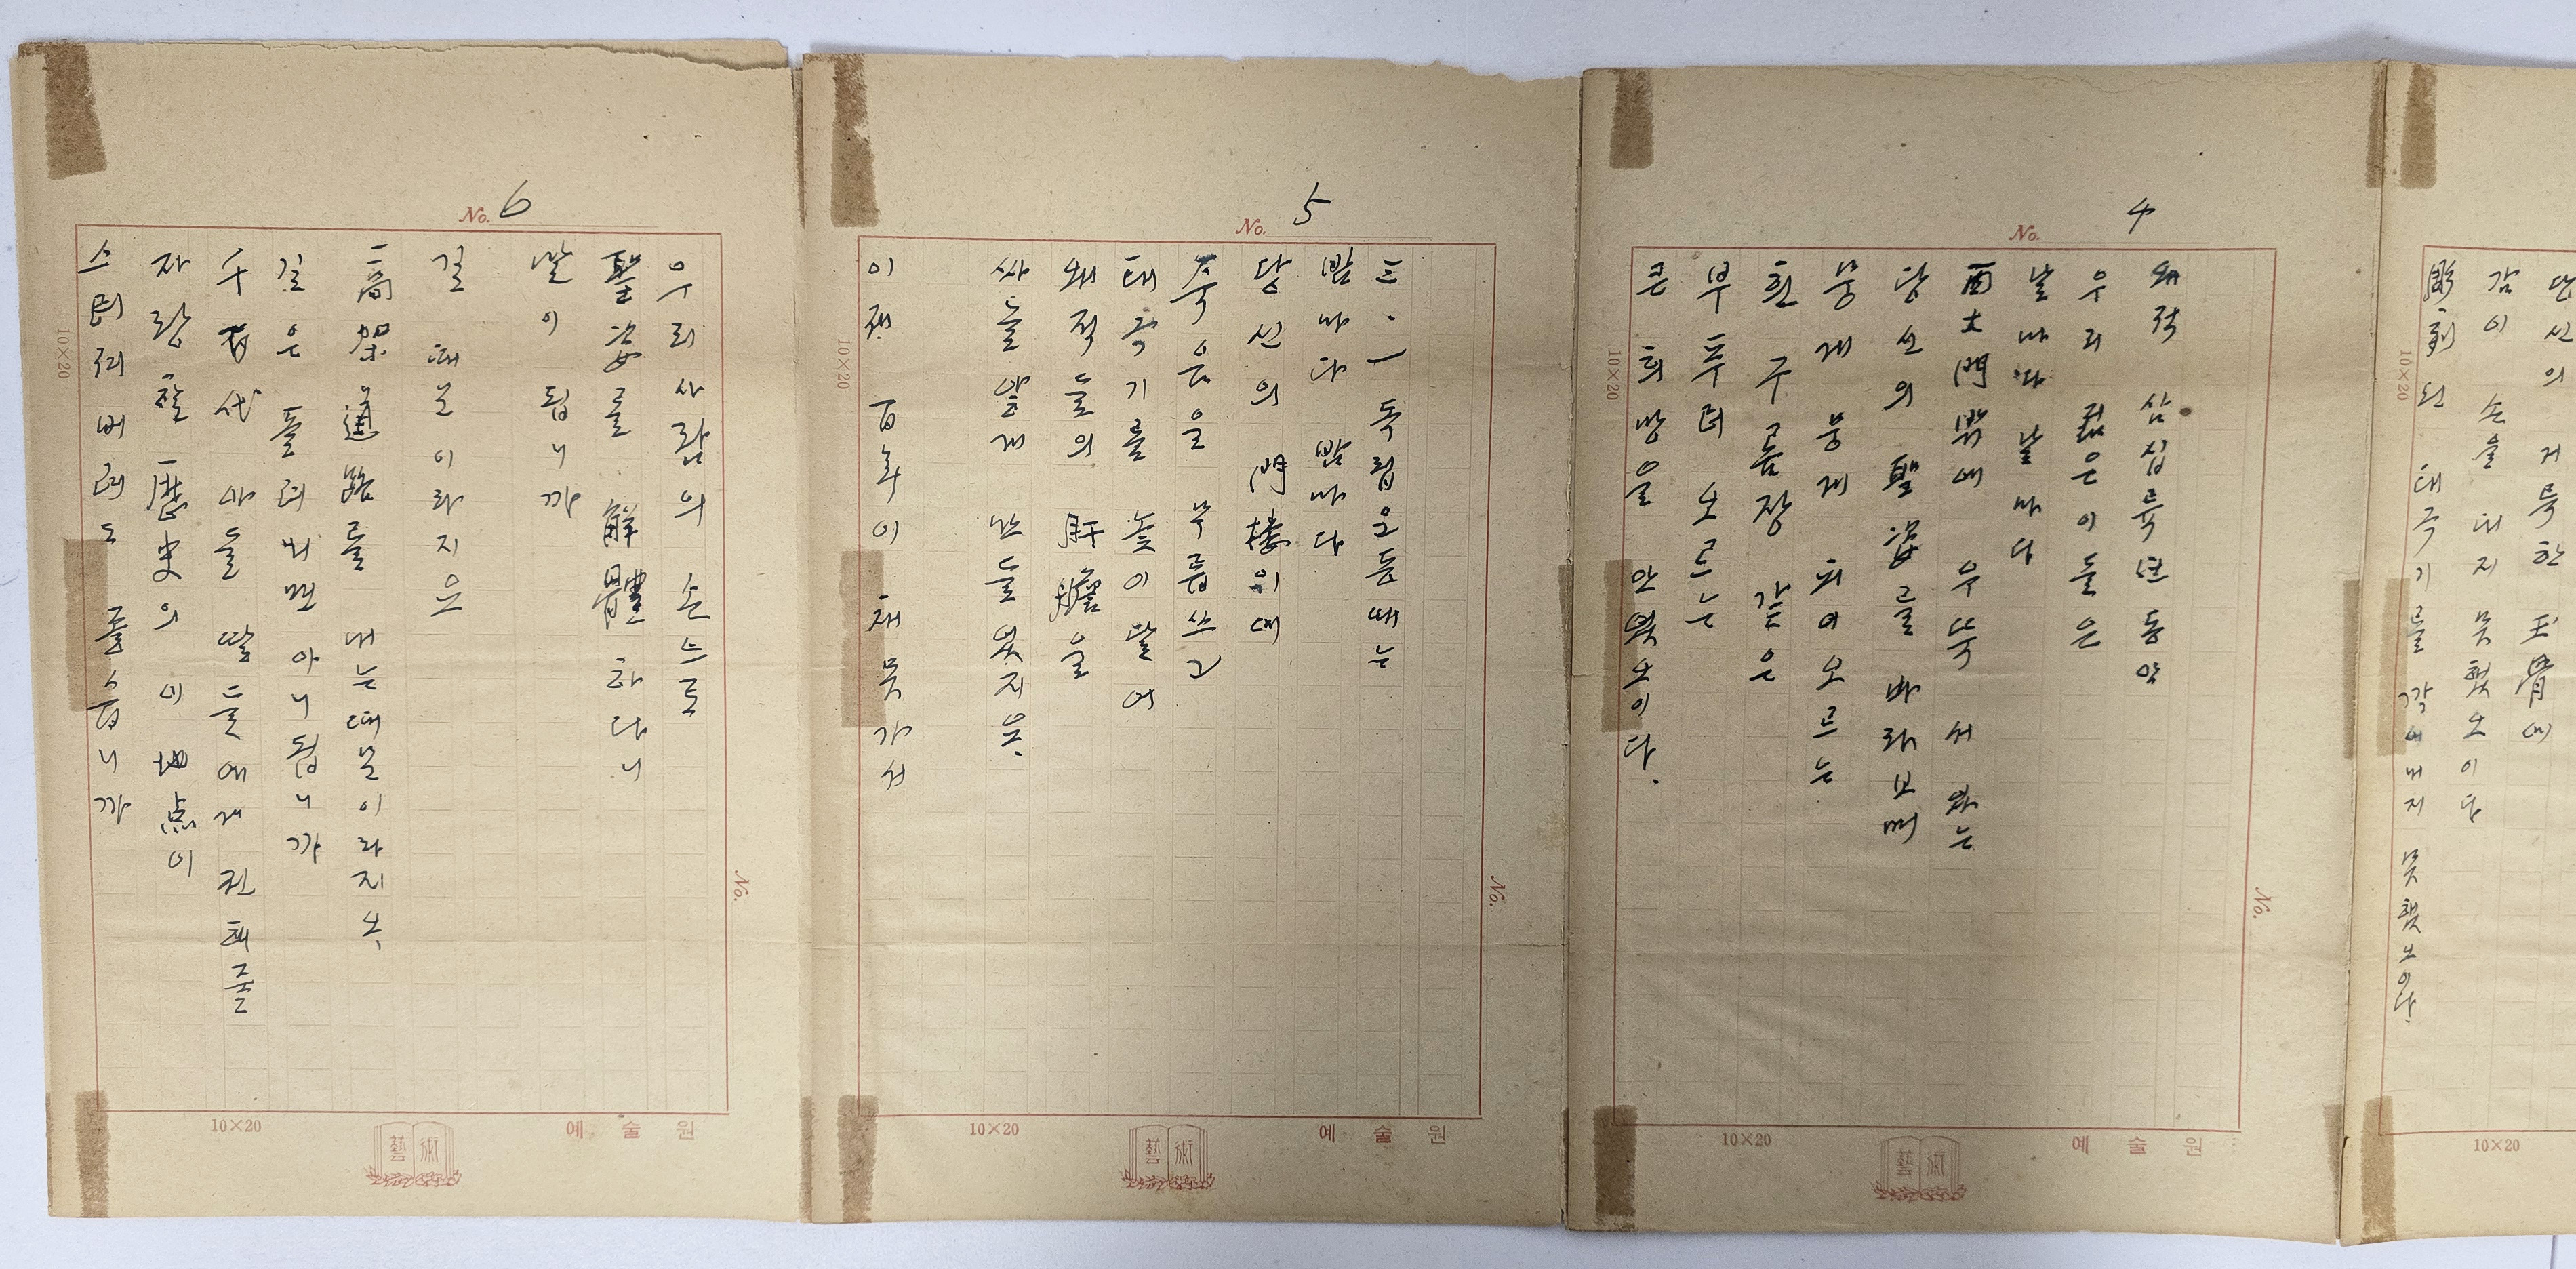 당신의 거룩한 玉骨에
감이 손을 대지 못했오이다
彫刻된 태극기를 깎어 내지 못했오이다.
No. 4
왜적 삼십륙년 동안
우리 젊은이들은
날마다 날마다
西大門 밖에 우뚝 서 있는
당신의 聖姿를 바라보며
뭉게 뭉게 피여 오르는
흰 구름장 같은
부푸러 오르는
큰 희망을 안엇오이다.
10×20
No.
10×20
예술원
藝術
No. 5
三·一 독립운동때는
밤마다 밤마다
당신의 門楼위에
죽음을 무릅쓰고
태극기를 높이 달어
왜적들의 肝膽을
싸늘앟게 만들엇지요.
이제 百年이 채 못가서
10×20
No.
10×20
예술원
藝術
No. 6
우리 사람의 손으로
聖姿를 解體하다니
말이 됩니까
길 때문이라지오
高架道路를 내는 때문이라지오.
길은 돌려내면 아니됩니까
아들 딸들에게 전해줄
자랑할 歷史의 이 地点이
스러져 버려도 좋습니까
10×20
No.
10×20
예술원
藝術
10×20
10×20